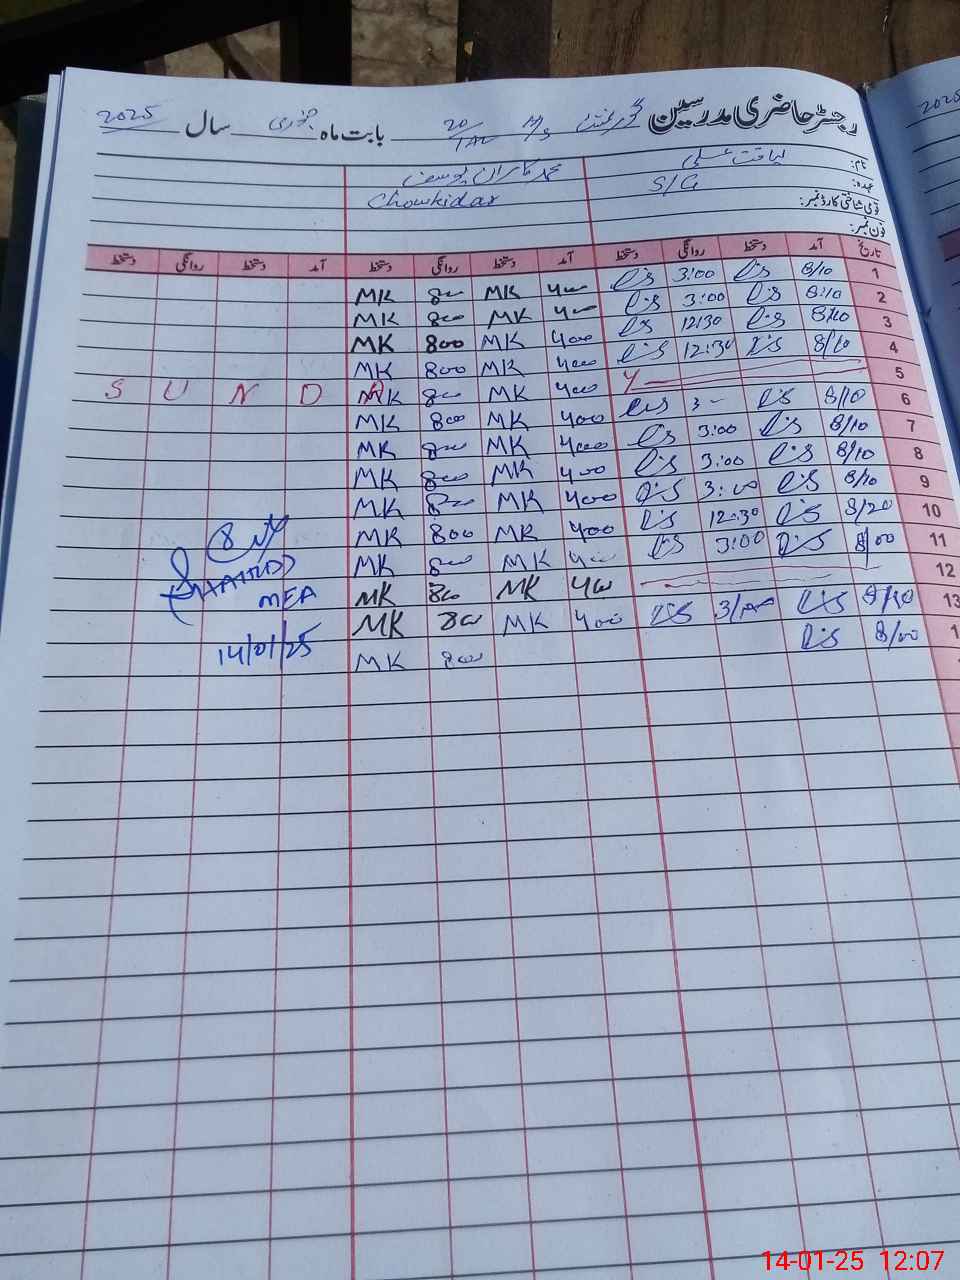 رجسٹر حاضری مدرسین گورنمنٹ M/S 20/TAL بابت ماہ جنوری سال 2025
نام: لیاقت علی محمد کامران یوسف
عہدہ: S/G Chowkidar
قومی شناختی کارڈ نمبر:
فون نمبر:
تاریخ آمد دستخط روانگی دستخط آمد دستخط روانگی دستخط آمد دستخط روانگی دستخط
1 8/10 3:00 400 MK 800 MK
2 8:10 3:00 400 MK 800 MK
3 8/10 12:30 400 MK 800 MK
4 8/10 12:30 400 MK 800 MK
5 400 MK 800 MK S U N D A Y
6 8/10 3- 400 MK 800 MK
7 8/10 3:00 400 MK 800 MK
8 8/10 3:00 400 MK 800 MK
9 8/10 3:00 400 MK 800 MK
10 8/20 12:30 400 MK 800 MK
11 8/00 3:00 400 MK 800 MK
12 400 MK 800 MK
13 8/10 3/00 400 MK 800 MK
1 8/00 800 MK
MEA
14/01/25
2025
14-01-25 12:07